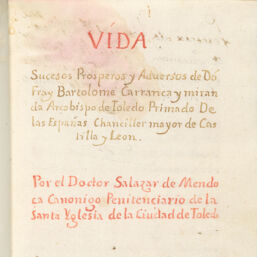 VIDA
Sucesos Prosperos y Adversos de Do
Fray Bartolome Carranca y miran
da Arcobispo de Toledo Primado De
las Españas Chanciller mayor de Cas
tilla y Leon.
Por el Doctor Salazar de Mendo
ca Canonigo Penitenciario de la
Santa Yglesia de la Ciudad de Toledo